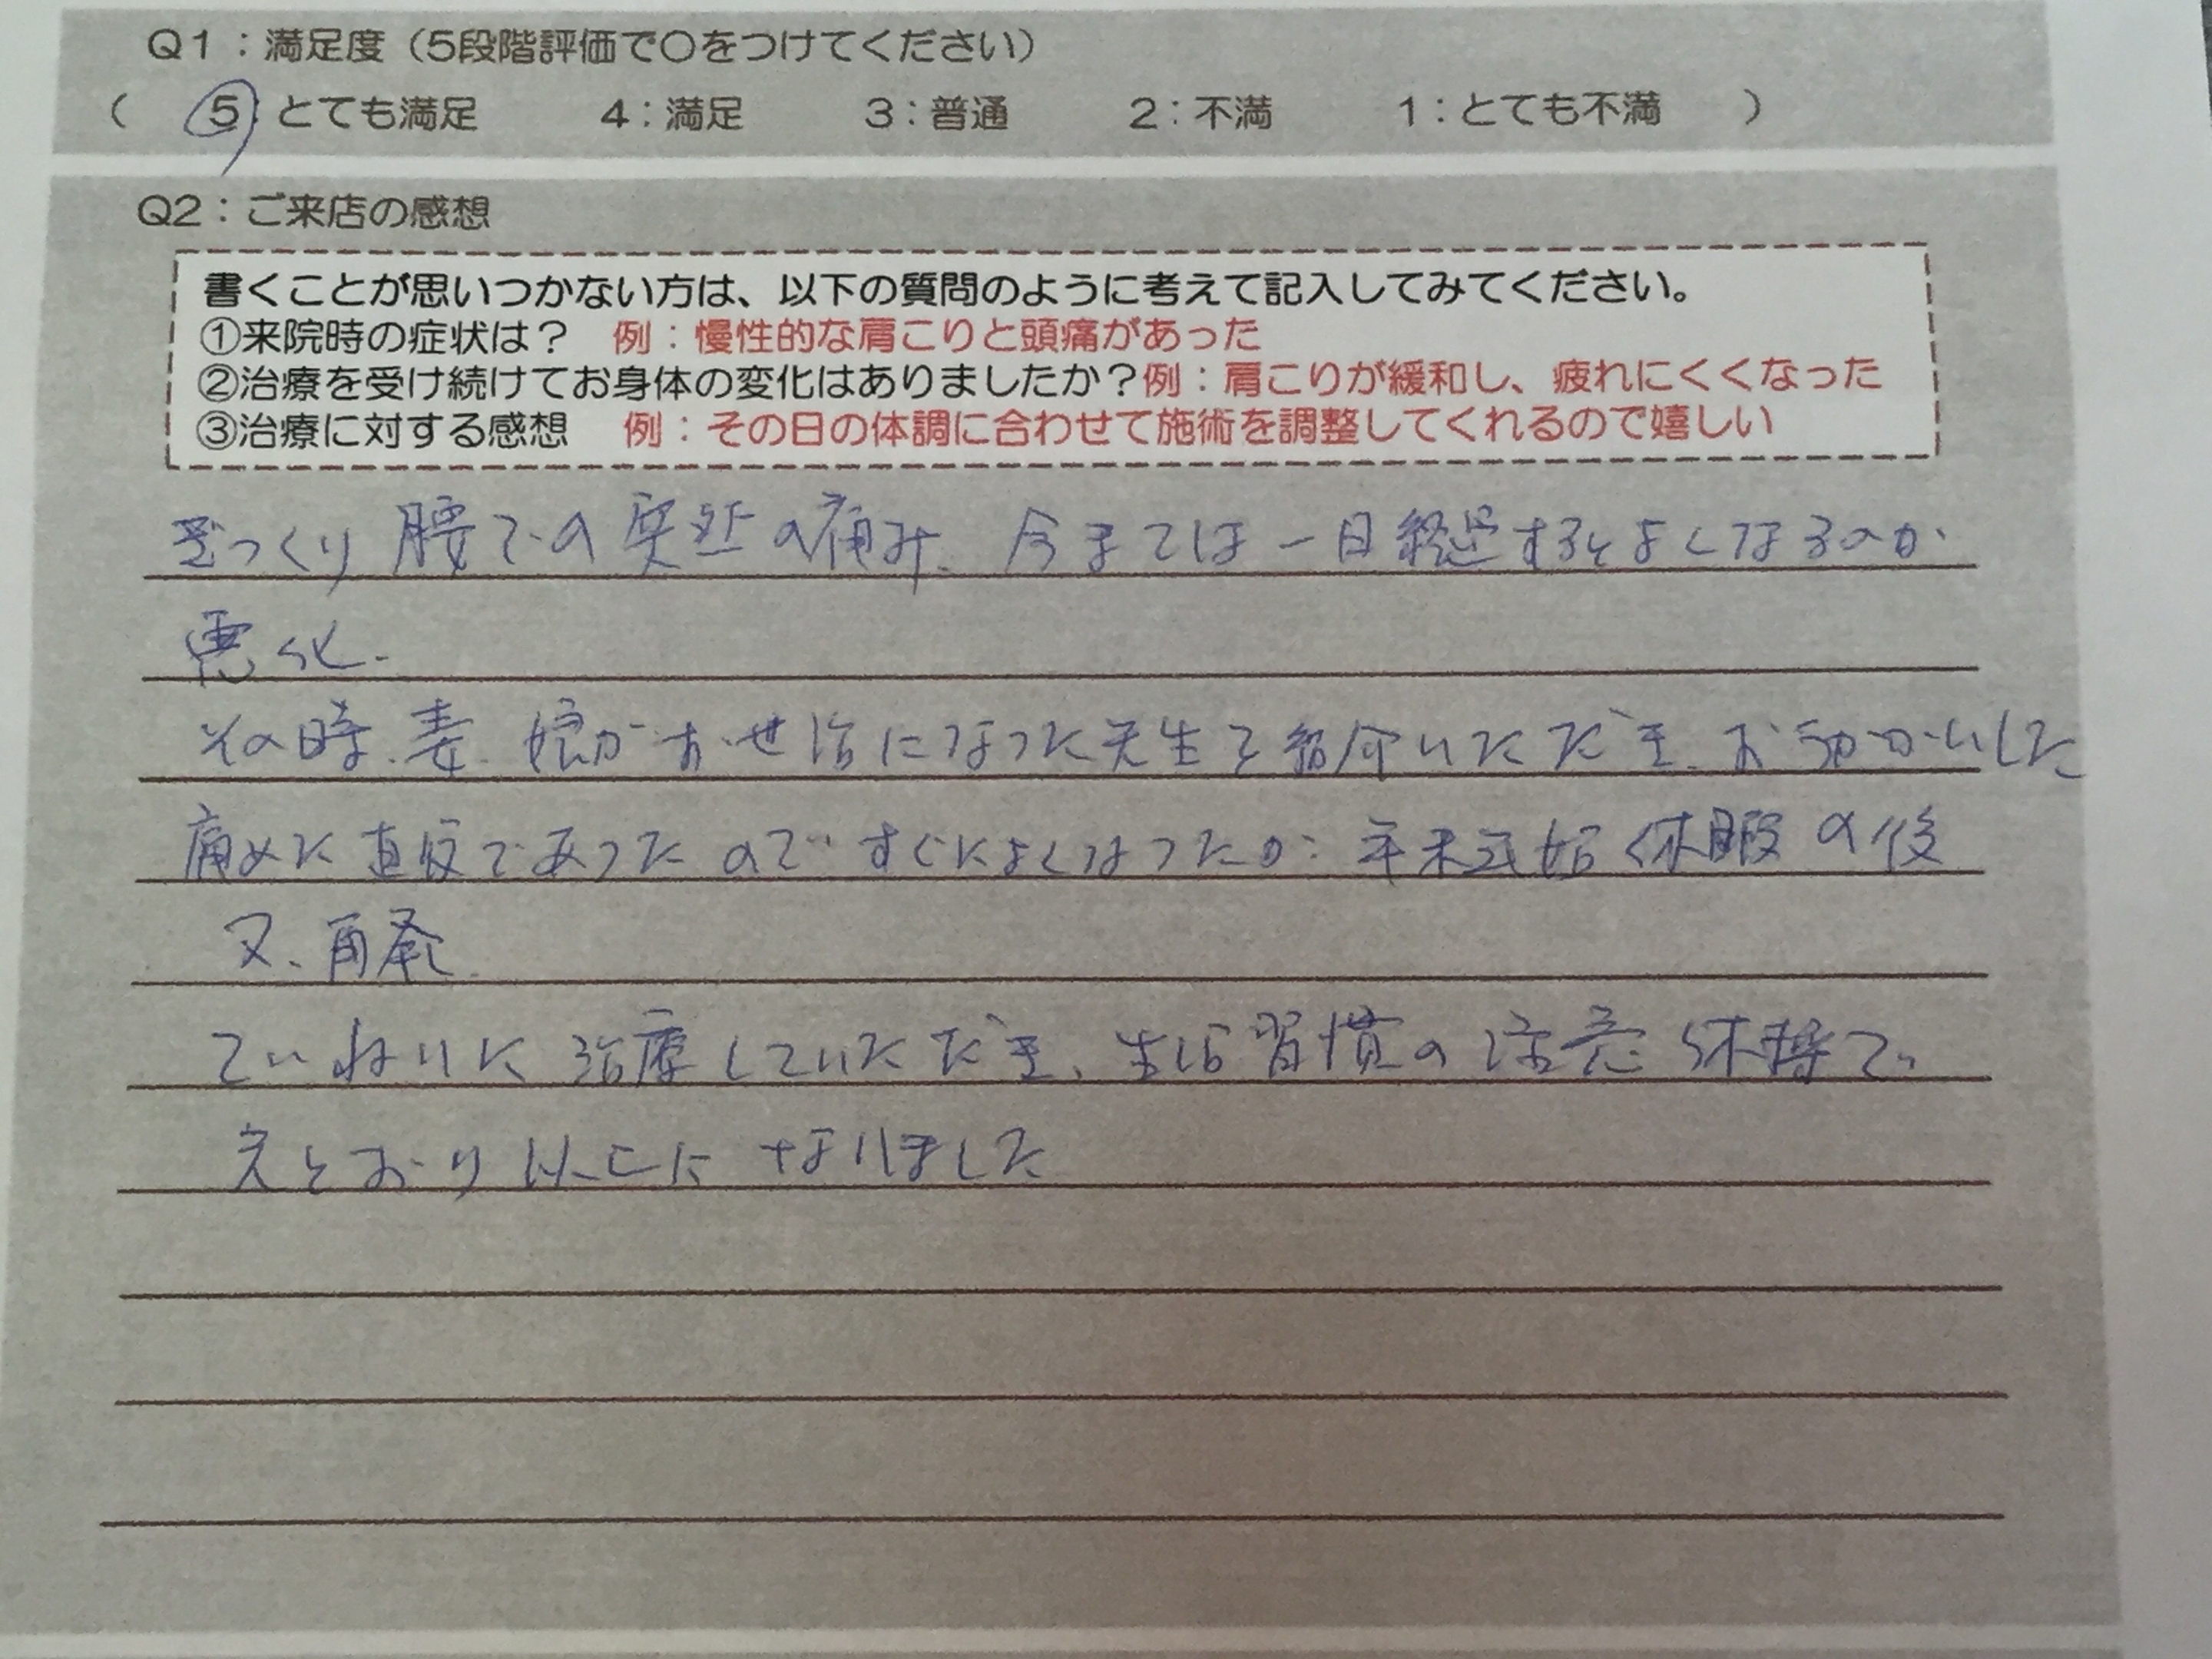 Q1：満足度（5段階評価で〇をつけてください）
（　5：とても満足　4：満足　3：普通　2：不満　1：とても不満　）
Q2：ご来店の感想
書くことが思いつかない方は、以下の質問のように考えて記入してみてください。
①来院時の症状は？　例：慢性的な肩こりと頭痛があった
②治療を受け続けてお身体の変化はありましたか？例：肩こりが緩和し、疲れにくくなった
③治療に対する感想　例：その日の体調に合わせて施術を調整してくれるので嬉しい
ぎっくり腰での突然の痛み、今までは一日経過するとよくなるのが
悪化.
その時、妻、娘がお世話になった先生を紹介いただき、おうかがいした
痛めた直後であったのですぐによくなったが、年末年始休暇の後
又、再発.
ていねいに治療していただき、生活習慣の注意
もとおり以上になりました